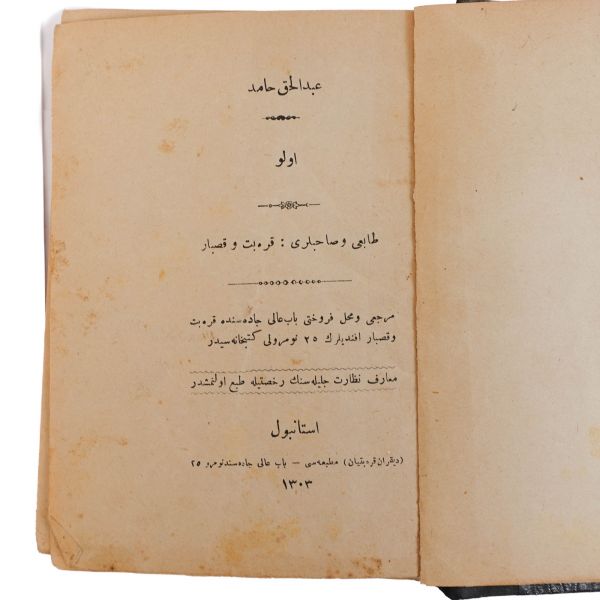 عبدالحق حامد
اولو
طابعی و صاحبلری : قره بت و قصبار
مرجعی و محل فروختی باب عالی جاده سنده قره بت
و قصبار افندیلرك ٢٥ نومرولی كتبخانه سیدر
معارف نظارت جلیله سنك رخصتیله طبع اولنمشدر
استانبول
(دیقران قره بتیان) مطبعه سی – باب عالی جاده سند نومرو ٢٥
١٣٠٣